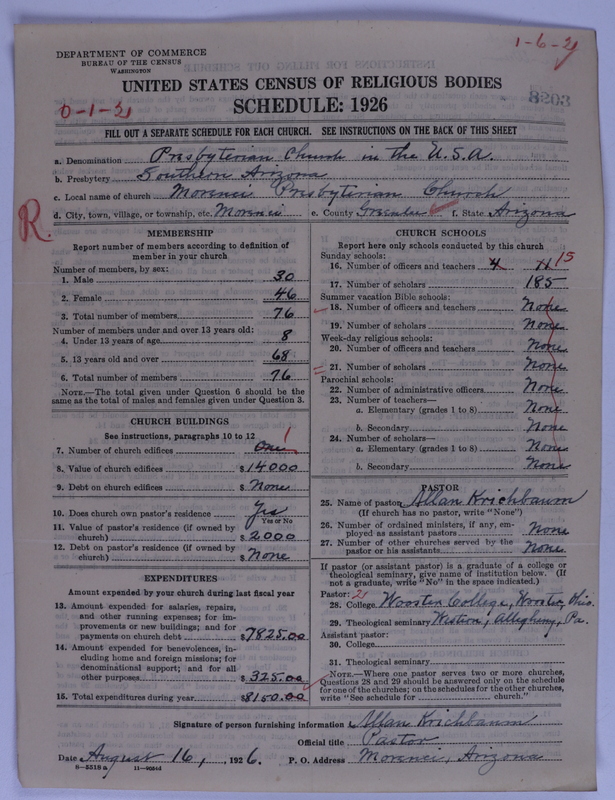 1-6-21
DEPARTMENT OF COMMERCE
BUREAU OF THE CENSUS
WASHINGTON
UNITED STATES CENSUS OF RELIGIOUS BODIES
0-1-21
SCHEDULE: 1926
8203
FILL OUT A SEPARATE SCHEDULE FOR EACH CHURCH. SEE INSTRUCTIONS ON THE BACK OF THIS SHEET
a. Denomination Presbyterian Church in the U.S.A.
b. Presbytery Southern Arizona
c. Local name of church Morenci Presbyterian Church
d. City, town, village, or township, etc. Morenci e. County Greenlee f. State Arizona
R.
MEMBERSHIP
Report number of members according to definition of member in your church
Number of members, by sex:
1. Male 30
2. Female 46
3. Total number of members 76
Number of members under and over 13 years old:
4. Under 13 years of age 8
5. 13 years old and over 68
6. Total number of members 76
NOTE.—The total given under Question 6 should be the same as the total of males and females given under Question 3.
CHURCH BUILDINGS
See instructions, paragraphs 10 to 12
7. Number of church edifices One 1
8. Value of church edifices $14000
9. Debt on church edifices $ None
10. Does church own pastor's residence? Yes
Yes or No
11. Value of pastor's residence (if owned by church) $2000
12. Debt on pastor's residence (if owned by church) $ None
EXPENDITURES
Amount expended by your church during last fiscal year
13. Amount expended for salaries, repairs, and other running expenses; for improvements or new buildings; and for payments on church debt $7825.00
14. Amount expended for benevolences, including home and foreign missions; for denominational support; and for all other purposes $325.00
15. Total expenditures during year $8150.00
CHURCH SCHOOLS
Report here only schools conducted by this church
Sunday schools:
16. Number of officers and teachers 4 11 15
17. Number of scholars 185
Summer vacation Bible schools:
18. Number of officers and teachers None
19. Number of scholars None
Week-day religious schools:
20. Number of officers and teachers None
21. Number of scholars None
Parochial schools:
22. Number of administrative officers None
23. Number of teachers—
a. Elementary (grades 1 to 8) None
b. Secondary None
24. Number of scholars—
a. Elementary (grades 1 to 8) None
b. Secondary None
PASTOR
25. Name of pastor Allan Krichbaum
(If church has no pastor, write "None")
26. Number of ordained ministers, if any, employed as assistant pastors None
27. Number of other churches served by the pastor or his assistants None
If pastor (or assistant pastor) is a graduate of a college or theological seminary, give name of institution below. (If not a graduate, write "No" in the space indicated.)
Pastor: 2
28. College Wooster College, Wooster, Ohio.
29. Theological seminary Western, Allegheny, Pa.
Assistant pastor:
30. College
31. Theological seminary
NOTE.—Where one pastor serves two or more churches, Questions 28 and 29 should be answered only on the schedule for one of the churches; on the schedules for the other churches, write "See schedule for church."
Signature of person furnishing information Allan Krichbaum
Official title Pastor
Date August 16, 1926. P. O. Address Morenci, Arizona
8—5518 a 11—9056d